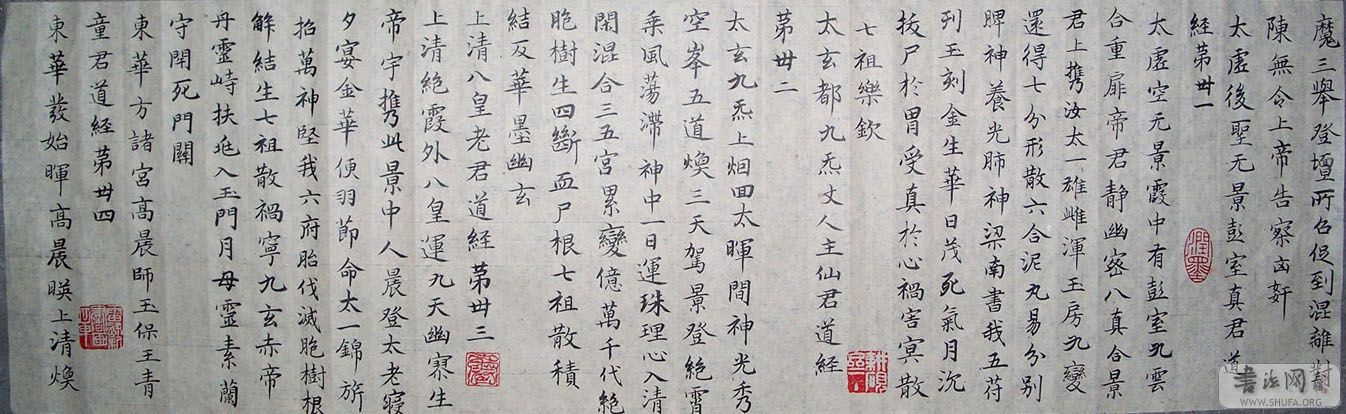 魔三舉登壇所召促到混離對
陳無令上帝告察凶奸
太虛後聖无景彭室真君道
經第丗一
太虛空无景霞中有彭室九雲
合重扉帝君静幽宻八真合景
君上携汝太一雄雌渾玉房九變
還得七分形散六合泥丸易分别
脾神養光肺神梁南書我五苻
刊玉刻金生華日茂死氣月沉
拔尸於胃受真於心禍害㝠散
七祖樂欽
太玄都九炁丈人主仙君道经
第丗二
太玄九炁上烟回太暉間神光秀
空峯五道煥三天駕景登绝霄
乘風蕩滯神中一日運珠理心入清
閑混合三五宫累變億萬千代絶
胞樹生四斷血尸根七祖散積
結反華墨幽玄
上清八皇老君道经第丗三
上清絶霞外八皇運九天幽寥生
帝宇携此景中人晨登太老寢
夕宴金華便羽節命太一錦旂
招萬神堅我六府胎伐滅胞樹根
解結生七祖散禍寧九玄赤帝
丹靈峙扶兆入玉門月母靈素蘭
守閇死門關
東華方諸宫高晨師玉保王青
童君道经第丗四
東華發始暉高晨暎上清煥
書法网
WWW.SHUFA.ORG